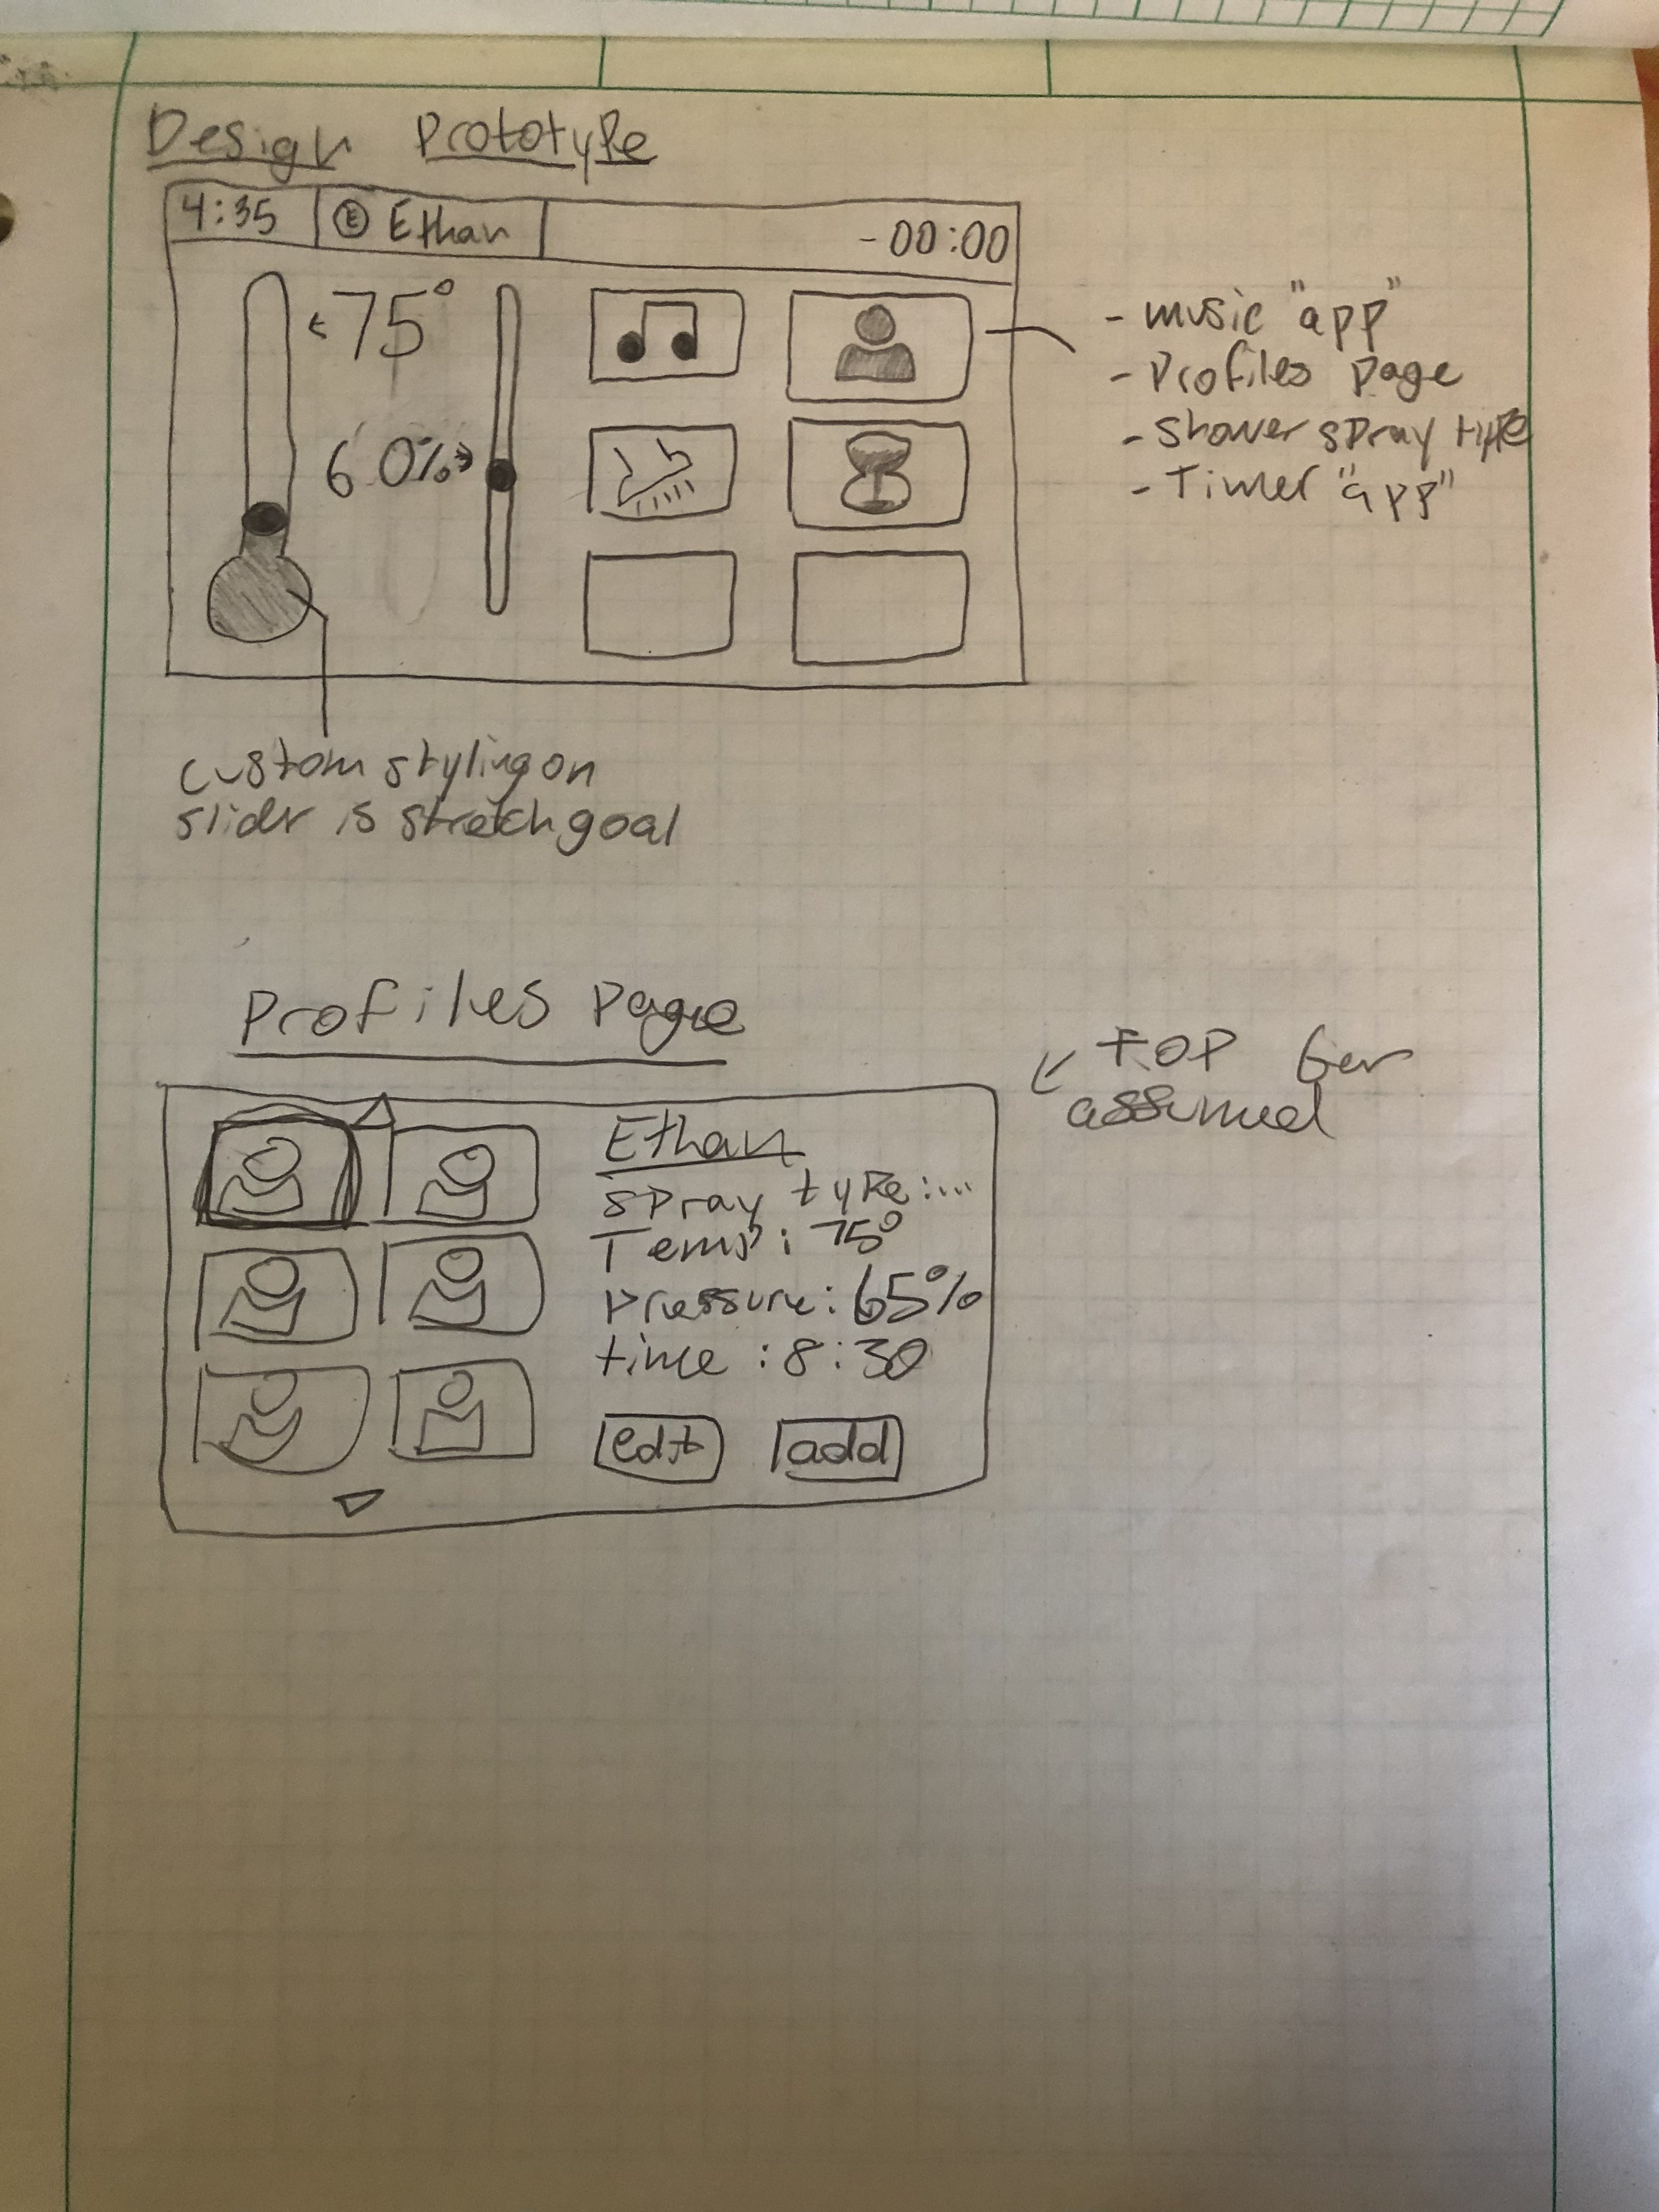 Design Prototype
4:35 Ⓔ Ethan -00:00
75°
60%
- music "app"
- Profiles page
- shower spray type
- Timer "app"
custom styling on
slider is stretch goal
Profiles Page
TOP bar
assumed
Ethan
spray type:...
Temp: 75°
pressure: 65%
time: 8:30
edit add